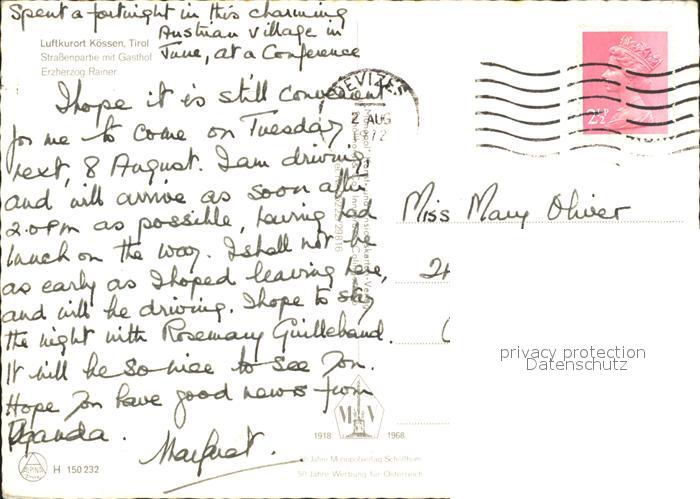 Spent a fortnight in this charming
Austrian village in
June, at a Conference
Luftkurort Kössen, Tirol
Straßenpartie mit Gasthof
Erzherzog Rainer
I hope it is still convenient
for me to come on Tuesday
next, 8 August. I am driving
and will arrive as soon after
2.0 pm as possible, having had
lunch on the way. I shall not be
as early as I hoped leaving here,
and will be driving. I hope to stay
the night with Rosemary Guillebaud.
It will be so nice to see you.
Hope you have good news from
Uganda.
Margaret.
DEVIZES
2 AUG
1972
2½P
Miss Mary Oliver
24
privacy protection
Datenschutz
M V
1918 1968
50 Jahre Monopolverlag Schöllhorn
50 Jahre Werbung für Österreich
ALPINA
H 150 232